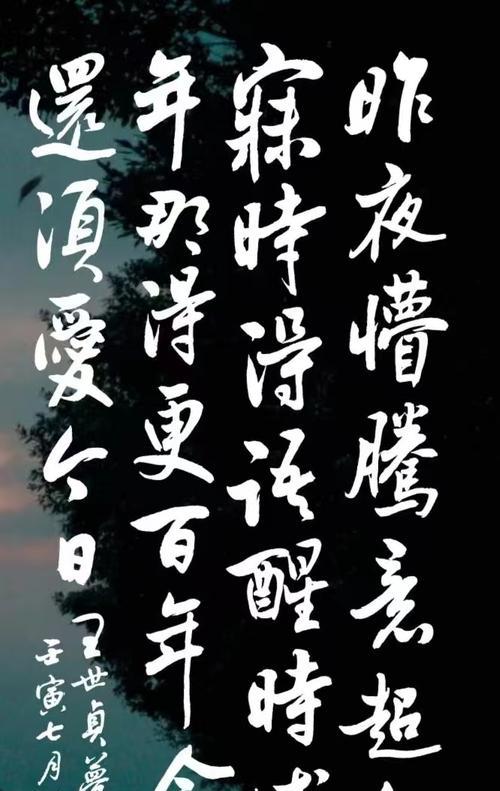 昨夜懵騰意超
寐時得語醒時
年那得更百年今
還須愛今日
王世貞夢
壬寅七月